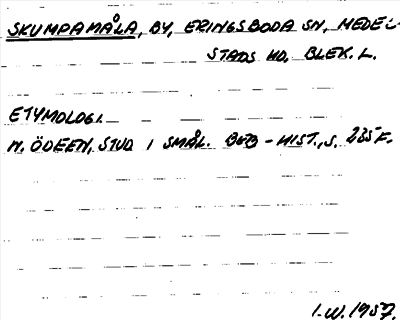 SKUMPAMÅLA, BY, ERINGSBODA SN, MEDEL-
STADS HD, BLEK. L.
ETYMOLOGI.
N. ÖDEEN, STUD I SMÅL. BEB-HIST., S. 235 F.
I.W. 1957.